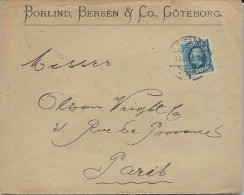 BORLIND, BERSÉN & CO., GÖTEBORG.
Messrs
Olsen Wright Co
Rue de Provence
Paris